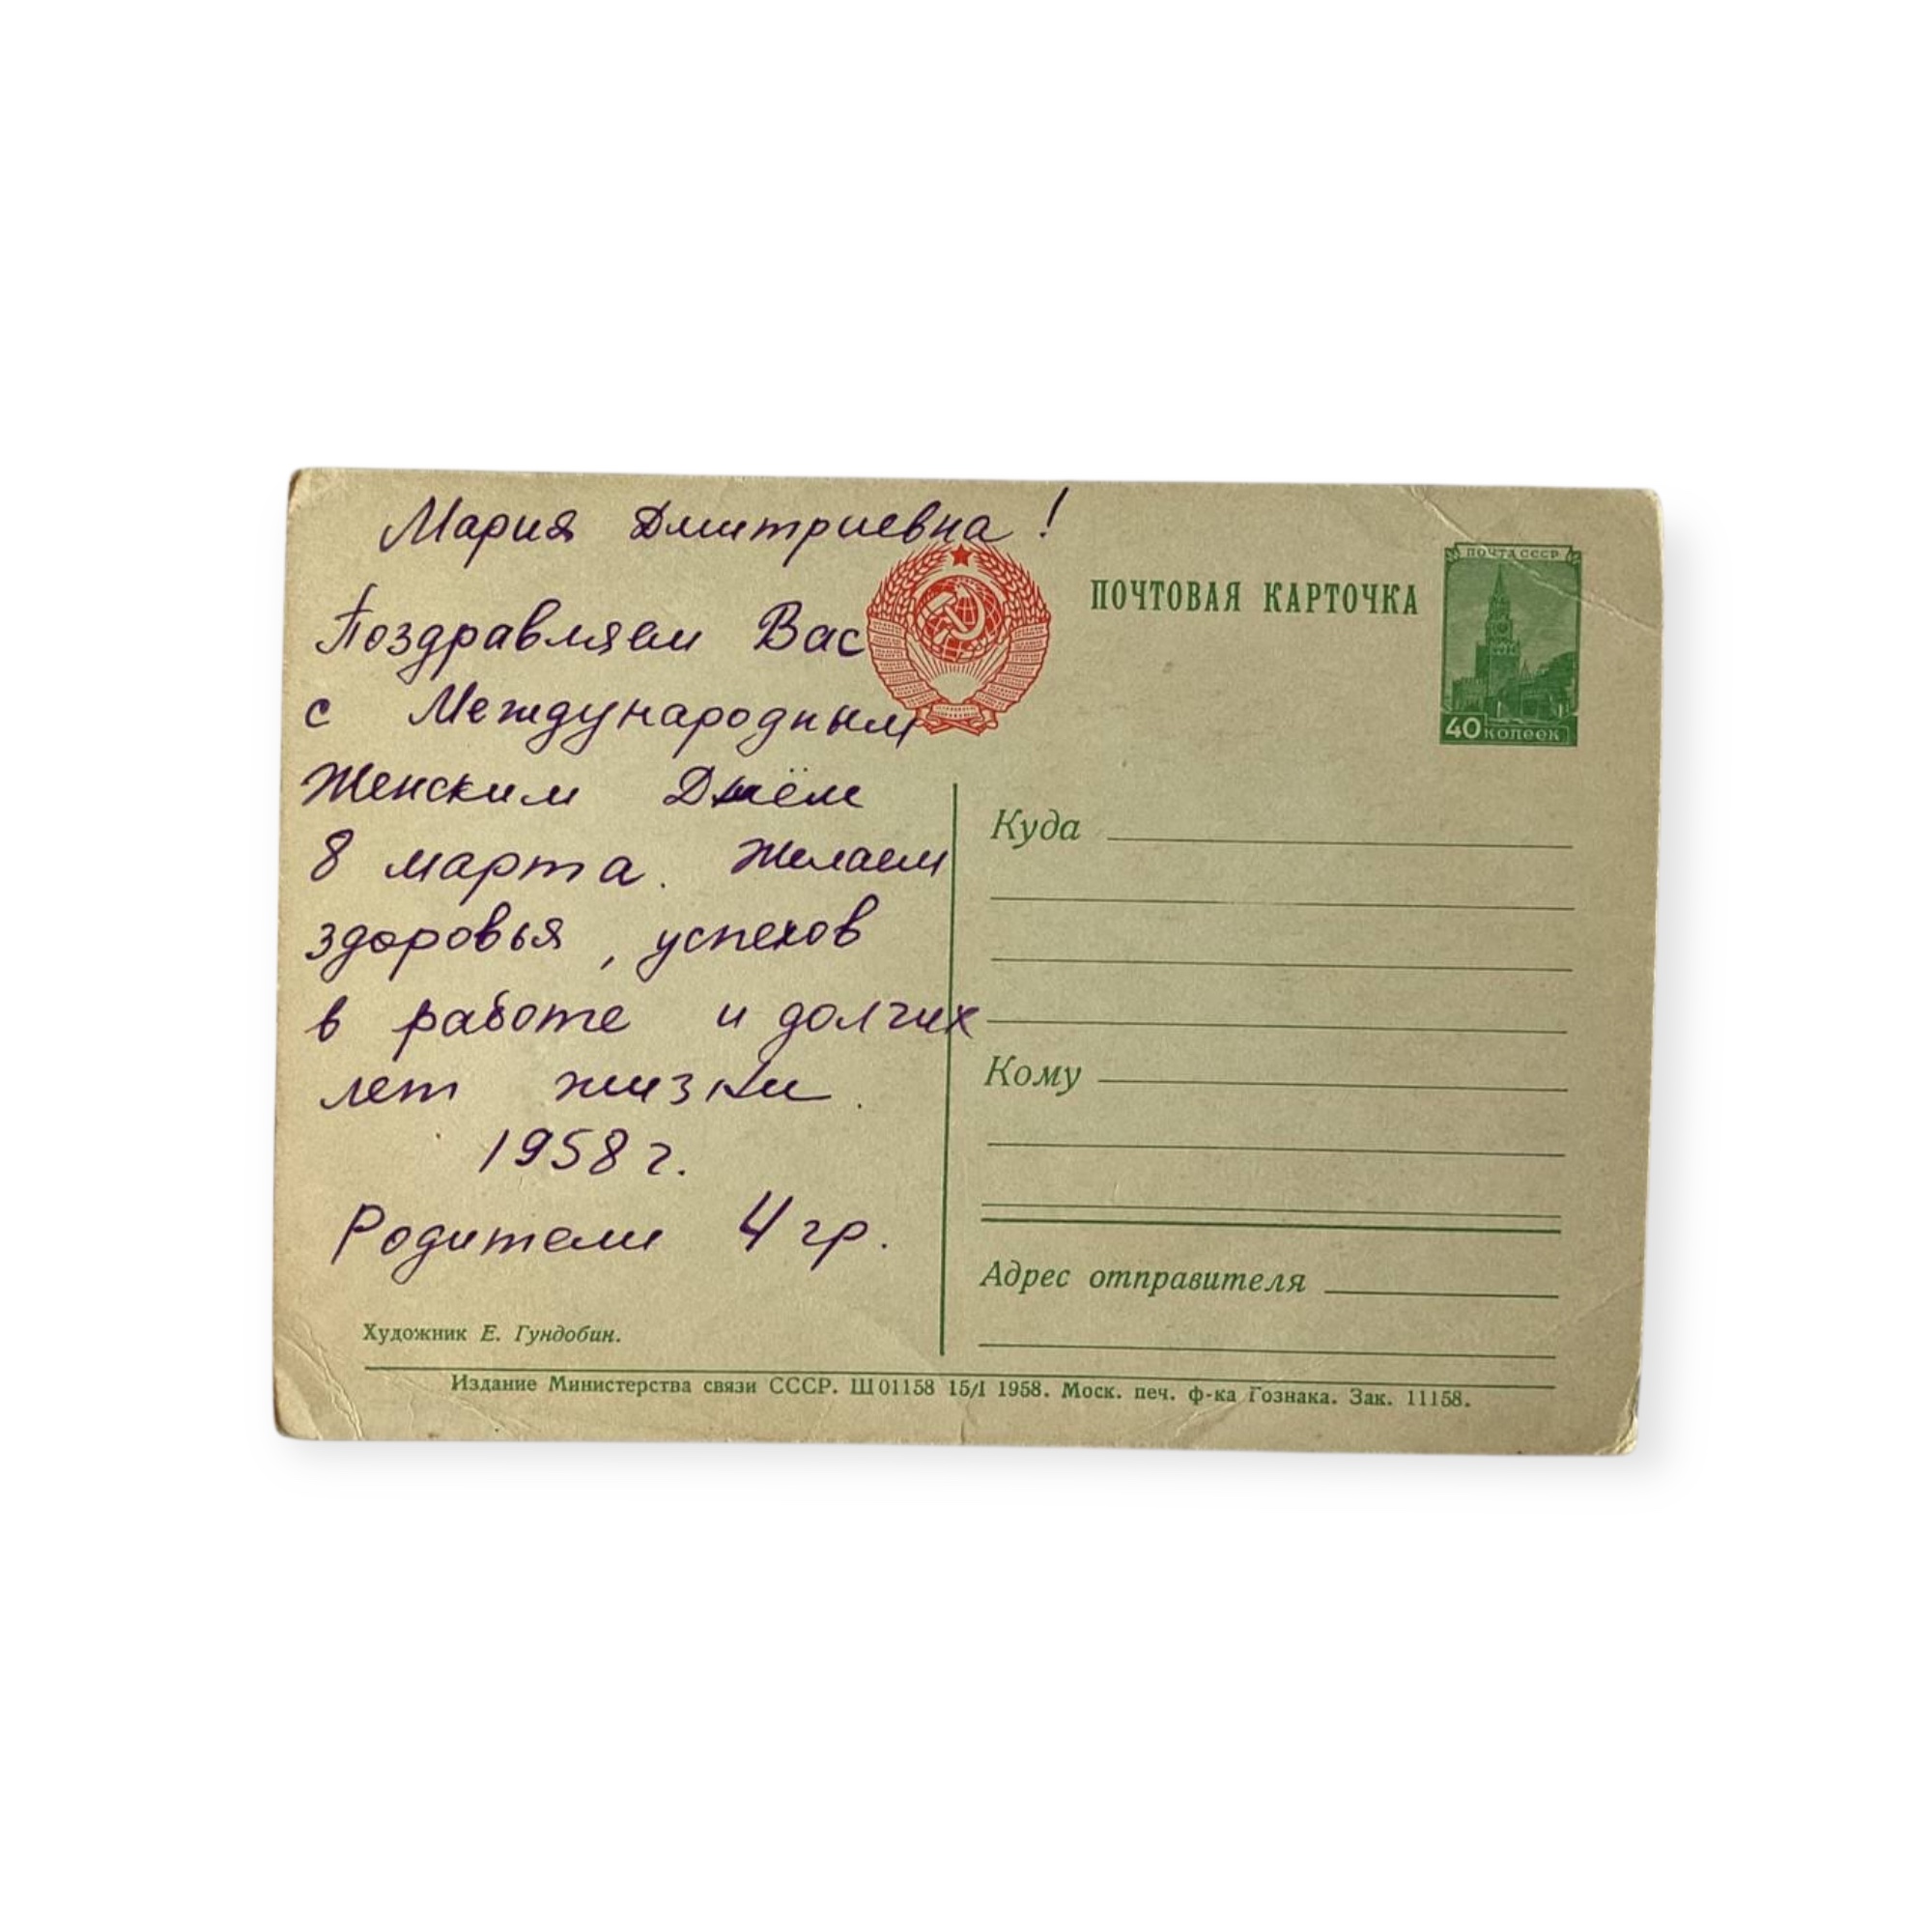 Мария Дмитриевна!
Поздравляем Вас
с Международным
Женским Днём
8 марта. Желаем
здоровья, успехов
в работе и долгих
лет жизни.
1958 г.
Родители 4 гр.
Художник Е. Гундобин.
ПОЧТОВАЯ КАРТОЧКА
ПОЧТА СССР
40 КОПЕЕК
Куда
Кому
Адрес отправителя
Издание Министерства связи СССР. Ш01158 15/I 1958. Моск. печ. ф-ка Гознака. Зак. 11158.